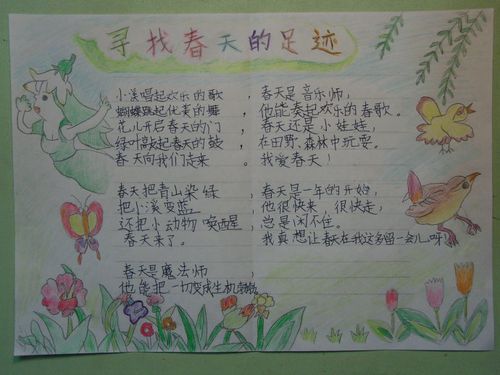 寻找春天的足迹
小溪唱起欢乐的歌，
蝴蝶跳起优美的舞，
花儿开启春天的门，
绿叶敲起春天的鼓，
春天向我们走来。
春天把青山染绿，
把小溪变蓝，
还把小动物唤醒，
春天来了。
春天是魔法师，
他能把一切变成生机勃勃。
春天是音乐师，
他能奏起欢乐的春歌。
春天还是小娃娃，
在田野、森林中玩耍。
我爱春天！
春天是一年的开始，
他很快来 很快走，
总是闲不住。
我真想让春天在我这多留一会儿呀！